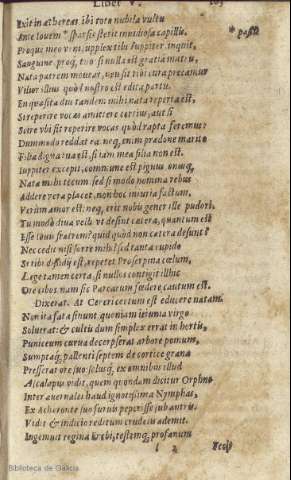 Liber V. 105
Exit in æthereas: ibi toto nubila vultu
Ante Iouem * sparsis stetit inuidiosa capillis. * passis
Proque meo veni supplex tibi Iuppiter, inquit,
Sanguine, proq; tuo: si nulla est gratia matris,
Nata patrem moueat, neu sit tibi cura precamur
Vilior illius, quòd nostro est edita partu.
En quæsita diu tandem mihi nata reperta est,
Si reperire vocas amittere certius, aut si
Scire vbi sit reperire vocas. quòd rapta feremus:
Dummodo reddat ea. neq; enim prædone marito
Filia digna tua est, si iam mea filia non est.
Iuppiter excepit, commune est pignus, onusq;
Nata mihi tecum: sed si modò nomina rebus
Addere vera placet, non hoc iniuria factum,
Verùm amor est: neq; erit nobis gener ille pudori,
Tu modò diua velis. vt desint cætera, quantum est
Esse Iouis fratrem? quid quòd non cætera desunt?
Nec cedit nisi sorte mihi? sed tanta cupido
Si tibi dissidij est, repetet Proserpina cœlum,
Lege tamen certa, si nullos contigit illic
Ore cibos. nam sic Parcarum fœdere cautum est.
Dixerat. At Cereri certum est educere natam.
Non ita fata sinunt. quoniam ieiunia virgo
Soluerat: & cultis dum simplex errat in hortis,
Puniceum curua decerpserat arbore pomum,
Sumptaq; pallenti septem de cortice grana
Presserat ore suo: solusq; ex omnibus illud
Ascalaphus vidit, quem quondam dicitur Orphne
Inter auernales haud ignotissima Nymphas,
Ex Acheronte suo furuis peperisse sub antris.
Vidit: & indicio reditum crudelis ademit.
Ingemuit regina Erebi, testemq; profanum
Biblioteca de Galicia